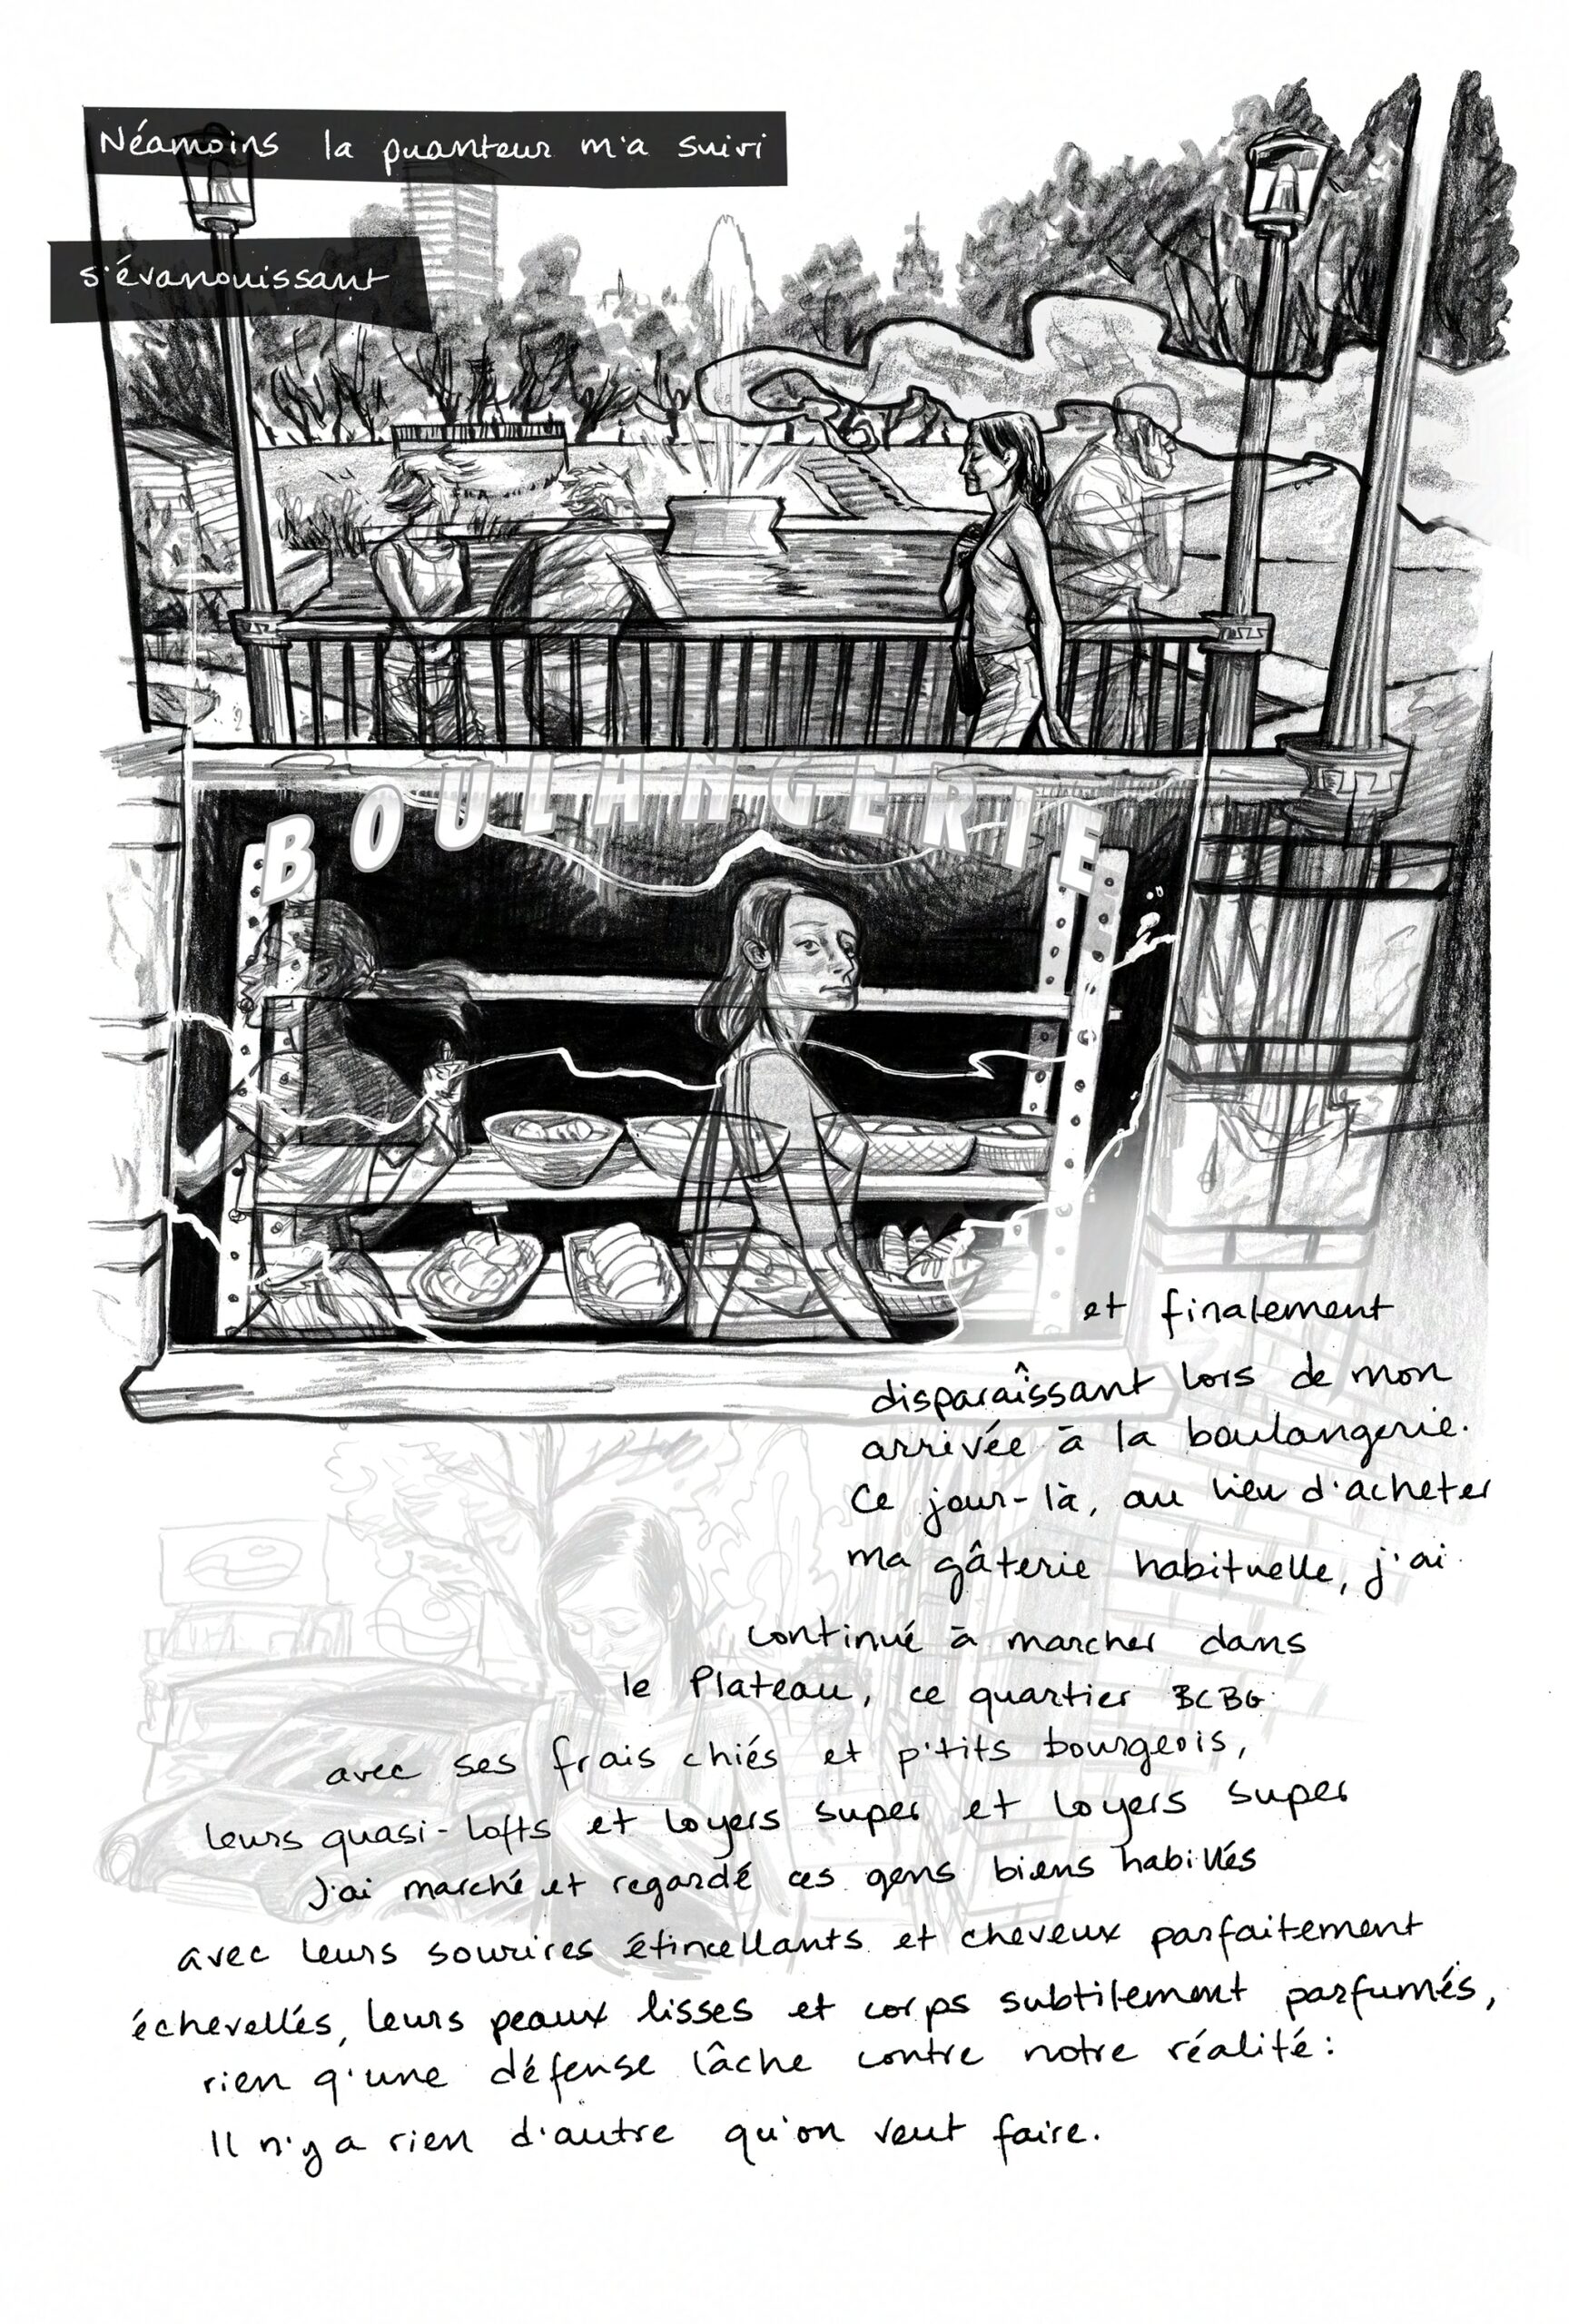 Néamoins la puanteur m'a suivi
s'évanouissant
BOULANGERIE
et finalement
disparaîssant lors de mon
arrivée à la boulangerie.
Ce jour-là, au lieu d'acheter
ma gâterie habituelle, j'ai
continué à marcher dans
le Plateau, ce quartier BCBG
avec ses frais chiés et p'tits bourgeois,
leurs quasi-lofts et loyers super et loyers super
J'ai marché et regardé ces gens biens habillés
avec leurs sourires étincellants et cheveux parfaitement
échevellés, leurs peaux lisses et corps subtilement parfumés,
rien q'une défense lâche contre notre réalité:
Il n'y a rien d'autre qu'on veut faire.